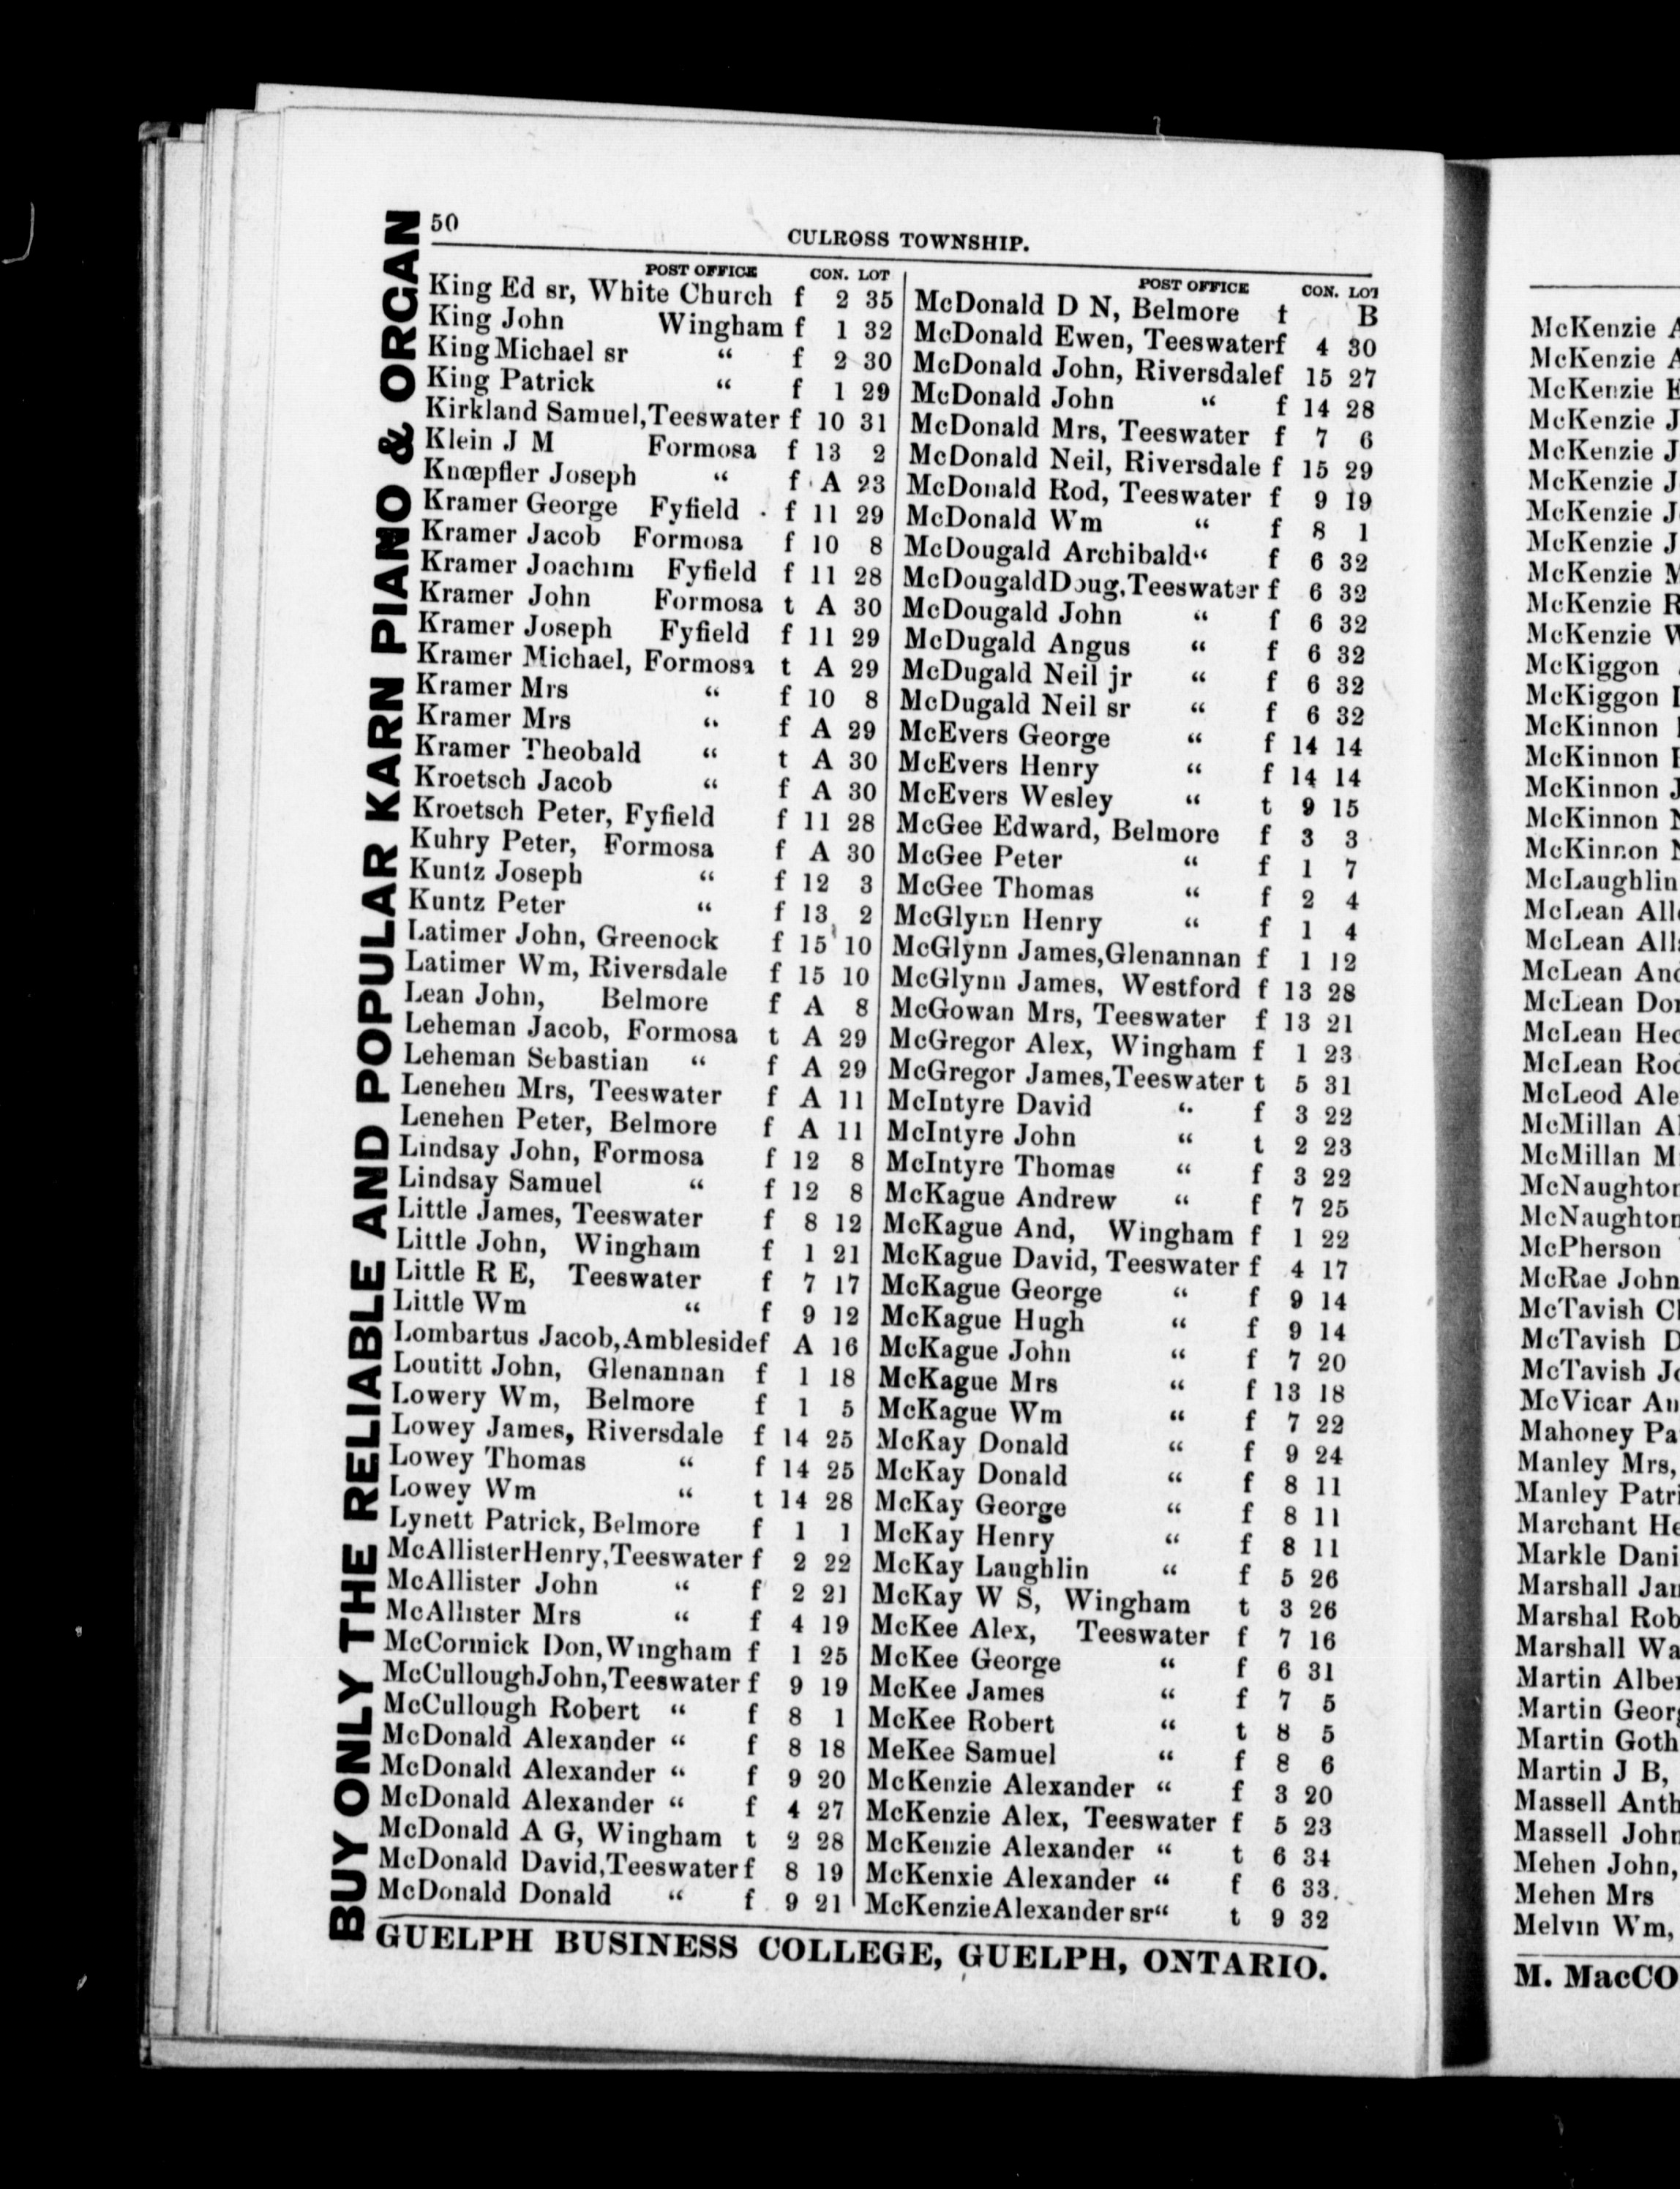 50
CULROSS TOWNSHIP.
BUY ONLY THE RELIABLE AND POPULAR KARN PIANO & ORGAN
POST OFFICE CON. LOT
King Ed sr, White Church f 2 35
King John Wingham f 1 32
King Michael sr “ f 2 30
King Patrick “ f 1 29
Kirkland Samuel, Teeswater f 10 31
Klein J M Formosa f 13 2
Knœpfler Joseph “ f A 23
Kramer George Fyfield f 11 29
Kramer Jacob Formosa f 10 8
Kramer Joachim Fyfield f 11 28
Kramer John Formosa t A 30
Kramer Joseph Fyfield f 11 29
Kramer Michael, Formosa t A 29
Kramer Mrs “ f 10 8
Kramer Mrs “ f A 29
Kramer Theobald “ t A 30
Kroetsch Jacob “ f A 30
Kroetsch Peter, Fyfield f 11 28
Kuhry Peter, Formosa f A 30
Kuntz Joseph “ f 12 3
Kuntz Peter “ f 13 2
Latimer John, Greenock f 15 10
Latimer Wm, Riversdale f 15 10
Lean John, Belmore f A 8
Leheman Jacob, Formosa t A 29
Leheman Sebastian “ f A 29
Lenehen Mrs, Teeswater f A 11
Lenehen Peter, Belmore f A 11
Lindsay John, Formosa f 12 8
Lindsay Samuel “ f 12 8
Little James, Teeswater f 8 12
Little John, Wingham f 1 21
Little R E, Teeswater f 7 17
Little Wm “ f 9 12
Lombartus Jacob, Ambleside f A 16
Loutitt John, Glenannan f 1 18
Lowery Wm, Belmore f 1 5
Lowey James, Riversdale f 14 25
Lowey Thomas “ f 14 25
Lowey Wm “ t 14 28
Lynett Patrick, Belmore f 1 1
McAllister Henry, Teeswater f 2 22
McAllister John “ f 2 21
McAllister Mrs “ f 4 19
McCormick Don, Wingham f 1 25
McCullough John, Teeswater f 9 19
McCullough Robert “ f 8 1
McDonald Alexander “ f 8 18
McDonald Alexander “ f 9 20
McDonald Alexander “ f 4 27
McDonald A G, Wingham t 2 28
McDonald David, Teeswater f 8 19
McDonald Donald “ f 9 21
POST OFFICE CON. LOT
McDonald D N, Belmore t B
McDonald Ewen, Teeswater f 4 30
McDonald John, Riversdale f 15 27
McDonald John “ f 14 28
McDonald Mrs, Teeswater f 7 6
McDonald Neil, Riversdale f 15 29
McDonald Rod, Teeswater f 9 19
McDonald Wm “ f 8 1
McDougald Archibald “ f 6 32
McDougald Doug, Teeswater f 6 32
McDougald John “ f 6 32
McDugald Angus “ f 6 32
McDugald Neil jr “ f 6 32
McDugald Neil sr “ f 6 32
McEvers George “ f 14 14
McEvers Henry “ f 14 14
McEvers Wesley “ t 9 15
McGee Edward, Belmore f 3 3
McGee Peter “ f 1 7
McGee Thomas “ f 2 4
McGlynn Henry “ f 1 4
McGlynn James, Glenannan f 1 12
McGlynn James, Westford f 13 28
McGowan Mrs, Teeswater f 13 21
McGregor Alex, Wingham f 1 23
McGregor James, Teeswater t 5 31
McIntyre David “ f 3 22
McIntyre John “ t 2 23
McIntyre Thomas “ f 3 22
McKague Andrew “ f 7 25
McKague And, Wingham f 1 22
McKague David, Teeswater f 4 17
McKague George “ f 9 14
McKague Hugh “ f 9 14
McKague John “ f 7 20
McKague Mrs “ f 13 18
McKague Wm “ f 7 22
McKay Donald “ f 9 24
McKay Donald “ f 8 11
McKay George “ f 8 11
McKay Henry “ f 8 11
McKay Laughlin “ f 5 26
McKay W S, Wingham t 3 26
McKee Alex, Teeswater f 7 16
McKee George “ f 6 31
McKee James “ f 7 5
McKee Robert “ t 8 5
MeKee Samuel “ f 8 6
McKenzie Alexander “ f 3 20
McKenzie Alex, Teeswater f 5 23
McKenzie Alexander “ t 6 34
McKenxie Alexander “ f 6 33
McKenzie Alexander sr “ t 9 32
GUELPH BUSINESS COLLEGE, GUELPH, ONTARIO.
McKenzie
McKenzie
McKenzie
McKenzie
McKenzie
McKenzie
McKenzie
McKenzie
McKenzie
McKenzie
McKenzie
McKiggon
McKiggon
McKinnon
McKinnon
McKinnon
McKinnon
McKinnon
McLaughlin
McLean
McLean
McLean
McLean
McLean
McLean
McLeod
McMillan
McMillan
McNaughton
McNaughton
McPherson
McRae John
McTavish
McTavish
McTavish
McVicar
Mahoney
Manley Mrs,
Manley
Marchant
Markle
Marshall
Marshal
Marshall
Martin
Martin
Martin
Martin J B,
Massell
Massell John
Mehen John,
Mehen Mrs
Melvin Wm,
M. MacCO